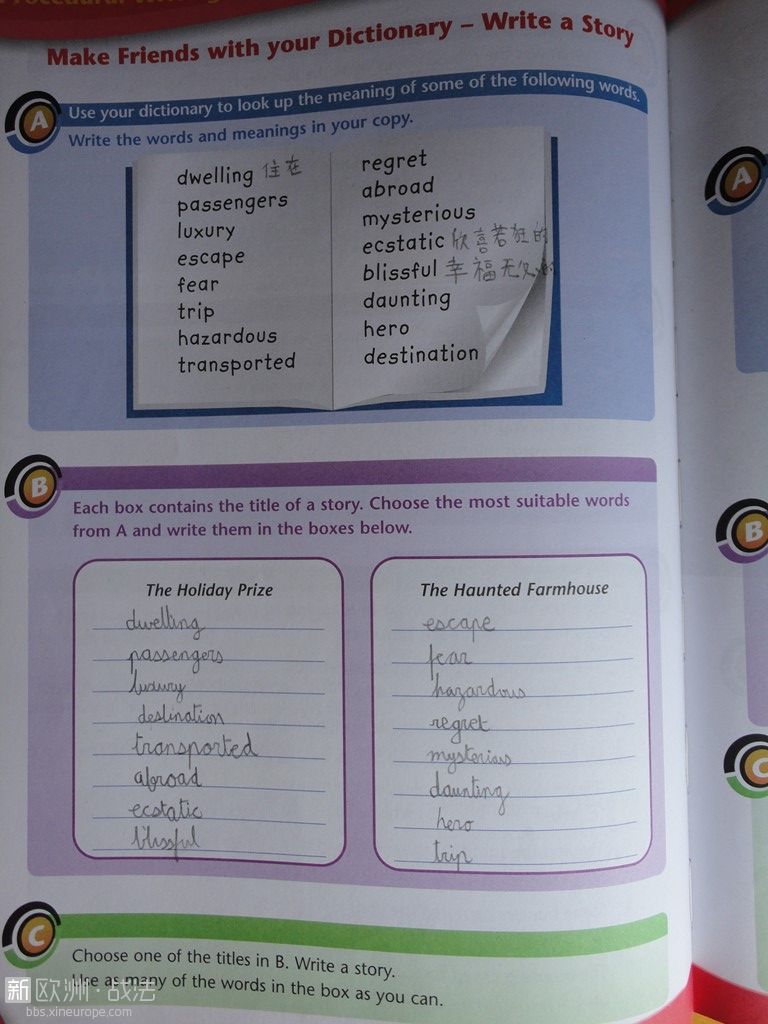 Make Friends with your Dictionary – Write a Story
A
Use your dictionary to look up the meaning of some of the following words.
Write the words and meanings in your copy.
dwelling 住在
passengers
luxury
escape
fear
trip
hazardous
transported
regret
abroad
mysterious
ecstatic 欣喜若狂的
blissful 幸福无
daunting
hero
destination
B
Each box contains the title of a story. Choose the most suitable words
from A and write them in the boxes below.
The Holiday Prize
dwelling
passengers
luxury
destination
transported
abroad
ecstatic
blissful
The Haunted Farmhouse
escape
fear
hazardous
regret
mysterious
daunting
hero
trip
C
Choose one of the titles in B. Write a story.
Use as many of the words in the box as you can.
新欧洲·战法
bbs.xineurope.com
A
B
C